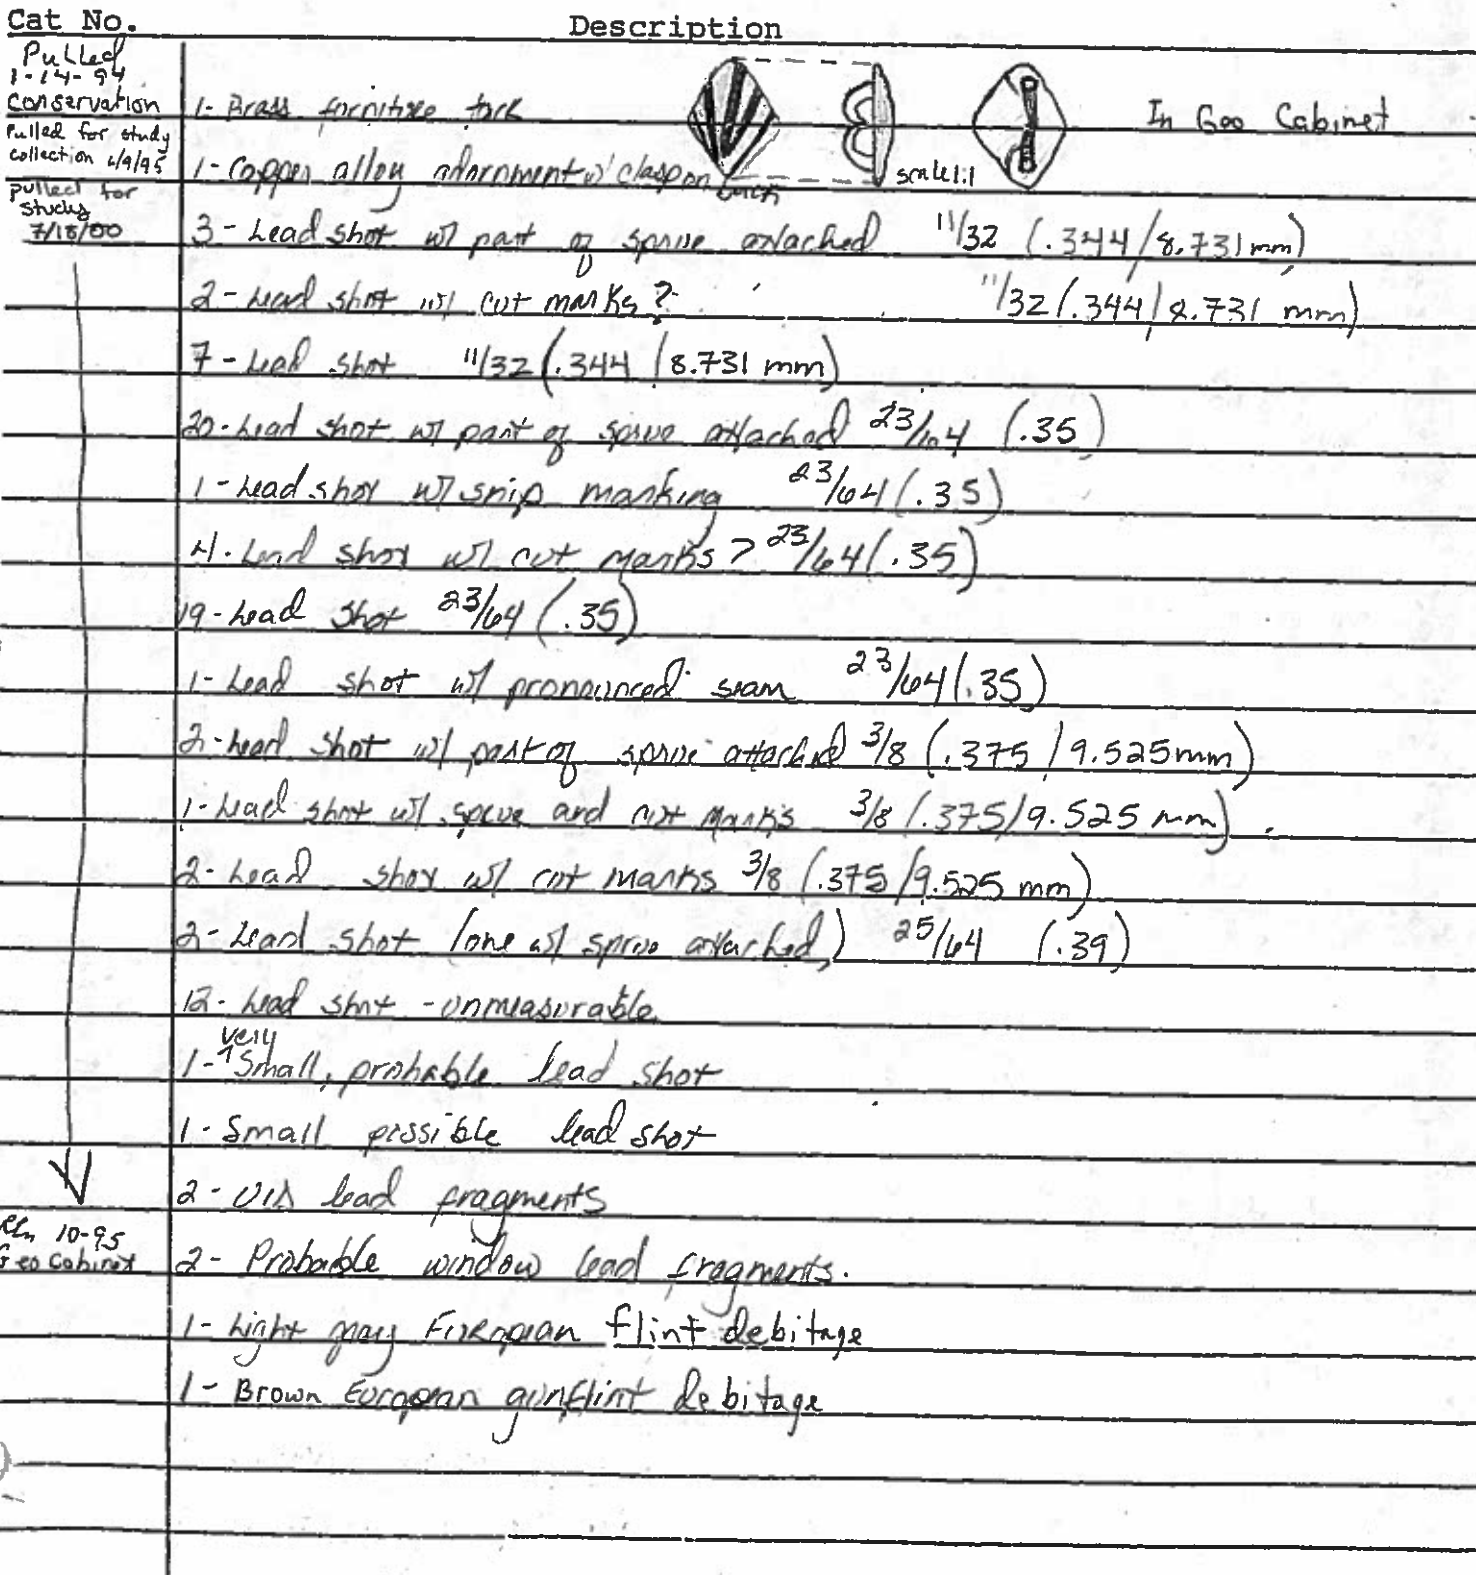 Cat No. Description
Pulled
1-14-94
Conservation
1- Brass furniture tack
In Geo Cabinet
Pulled for study
collection 6/9/95
1- Copper alloy adornment w/ clasp on back
scale 1:1
pulled for
study
7/18/00
3- Lead shot w/ part of sprue attached 11/32 (.344/8.731 mm)
2- Lead shot w/ cut marks? 11/32 (.344/8.731 mm)
7- Lead shot 11/32 (.344/8.731 mm)
20- Lead shot w/ part of sprue attached 23/64 (.35)
1- Lead shot w/ snip marking 23/64 (.35)
4- Lead shot w/ cut marks? 23/64 (.35)
19- Lead shot 23/64 (.35)
1- Lead shot w/ pronounced seam 23/64 (.35)
2- Lead shot w/ part of sprue attached 3/8 (.375/9.525mm)
1- Lead shot w/ sprue and cut marks 3/8 (.375/9.525 mm)
2- Lead shot w/ cut marks 3/8 (.375/9.525 mm)
2- Lead shot (one w/ sprue attached) 25/64 (.39)
12- Lead shot - unmeasurable
1- very small, probable lead shot
1- Small possible lead shot
2- UID lead fragments
10-95
Geo Cabinet
2- Probable window lead fragments.
1- Light gray European flint debitage
1- Brown European gunflint debitage